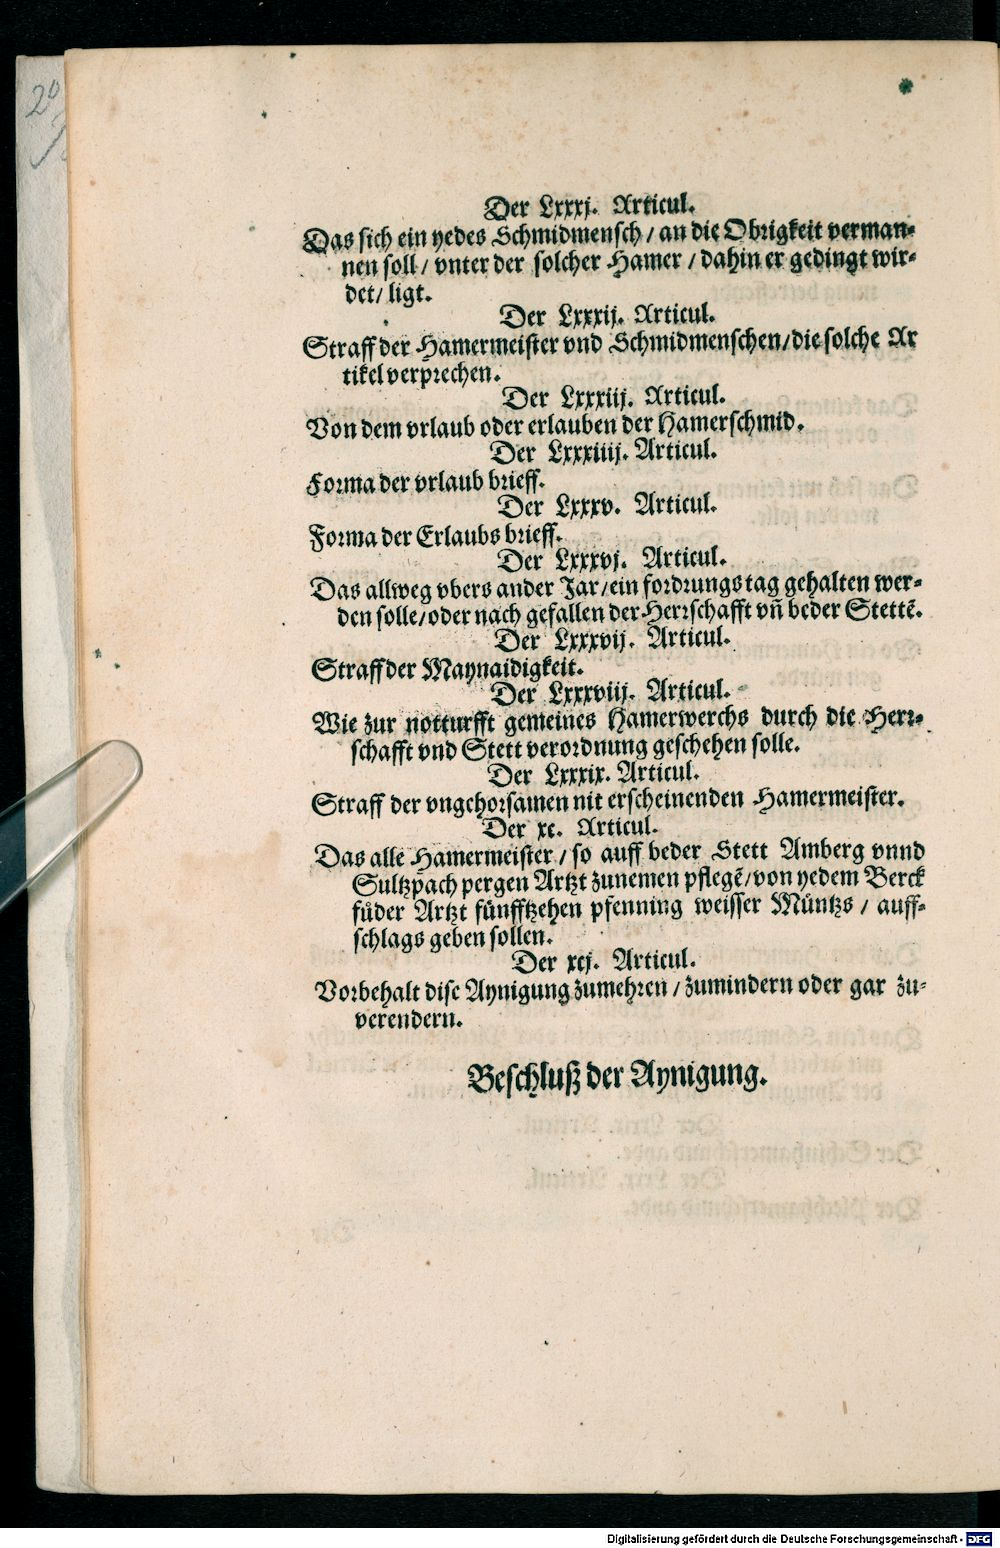 Der Lxxxj. Articul.
Das sich ein yedes Schmidmensch / an die Obrigkeit verman-
nen soll / vnter der solcher Hamer / dahin er gedingt wir-
det / ligt.
Der Lxxxij. Articul.
Straff der Hamermeister vnd Schmidmenschen / die solche Ar
tikel verprechen.
Der Lxxxiij. Articul.
Von dem vrlaub oder erlauben der Hamerschmid.
Der Lxxxiiij. Articul.
Forma der vrlaub brieff.
Der Lxxxv. Articul.
Forma der Erlaubs brieff.
Der Lxxxvj. Articul.
Das allweg vbers ander Jar / ein fordrungs tag gehalten wer-
den solle / oder nach gefallen der Herrschafft vn̄ beder Stettē.
Der Lxxxvij. Articul.
Straff der Maynaidigkeit.
Der Lxxxviij. Articul.
Wie zur notturfft gemeines Hamerwerchs durch die Herr-
schafft vnd Stett verordnung geschehen solle.
Der Lxxxix. Articul.
Straff der vngehorsamen nit erscheinenden Hamermeister.
Der xc. Articul.
Das alle Hamermeister / so auff beder Stett Amberg vnnd
Sultzpach pergen Artzt zunemen pflegē / von yedem Berck
fůder Artzt fünfftzehen pfenning weisser Müntzs / auff-
schlags geben sollen.
Der xcj. Articul.
Vorbehalt dise Aynigung zumehren / zumindern oder gar zu-
verendern.
Beschluß der Aynigung.
Digitalisierung gefördert durch die Deutsche Forschungsgemeinschaft - DFG